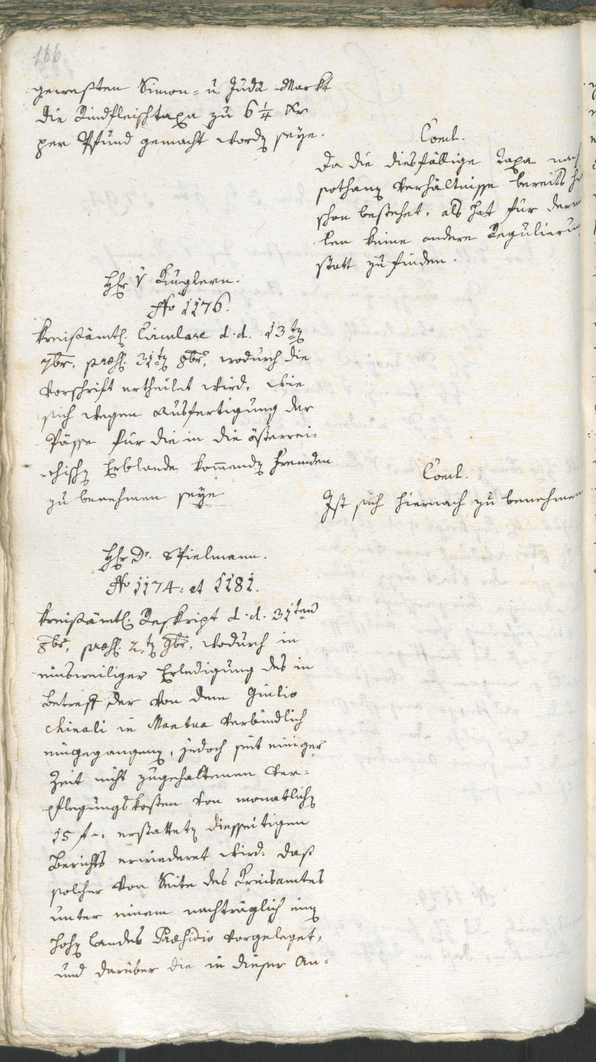 166
gewesten Simon- u. Juda Markt
die Rindfleischtaxa zu 6 1/4 Kr
per Pfund gemacht wordn seye.
Concl.
Da die diesfällige Taxa nach
sothann Verhältnisse bereits
schon bestehet, als hat für
keine andere Regulierun
statt zu finden.
Hr v Kuglern.
No 1176.
Kreisämtl. Circulare d. d. 13tn
7br, praes. 31tn 8br, wodurch die
Vorschrift ertheilet wird, wie
sich wegen Ausfertigung der
Pässe für die in die österrei-
chischn Erblande kommendn Fremden
zu benehmen seye
Concl.
Ist sich hiernach zu benehmen
Hr Dr. Spielmann.
No 1174. et 1181.
Kreisämtl. Reskript d. d. 31ten
8br, praes. 2tn 9br, wodurch in
einsweiliger Erledigung des in
Betreff der von dem Giulio
Chinali in Mantua verbindlich
eingegangenn, jedoch seit einiger
Zeit nicht zugehaltenen Ver-
pflegungskosten von monatlichn
15 f. erstattetn diesseitigen
Berichts erwiederet wird: daß
solcher von Seite des Kreisamtes
unter einem nachträglich einn
hohn Landes Praesidio vorgeleget,
und darüber die in dieser An-